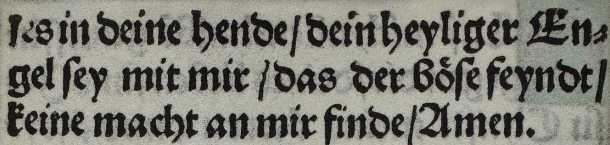 les in deine hende/ dein heyliger En⸗
gel sey mit mir / das der bo̎se feyndt/
keine macht an mir finde/ Amen.